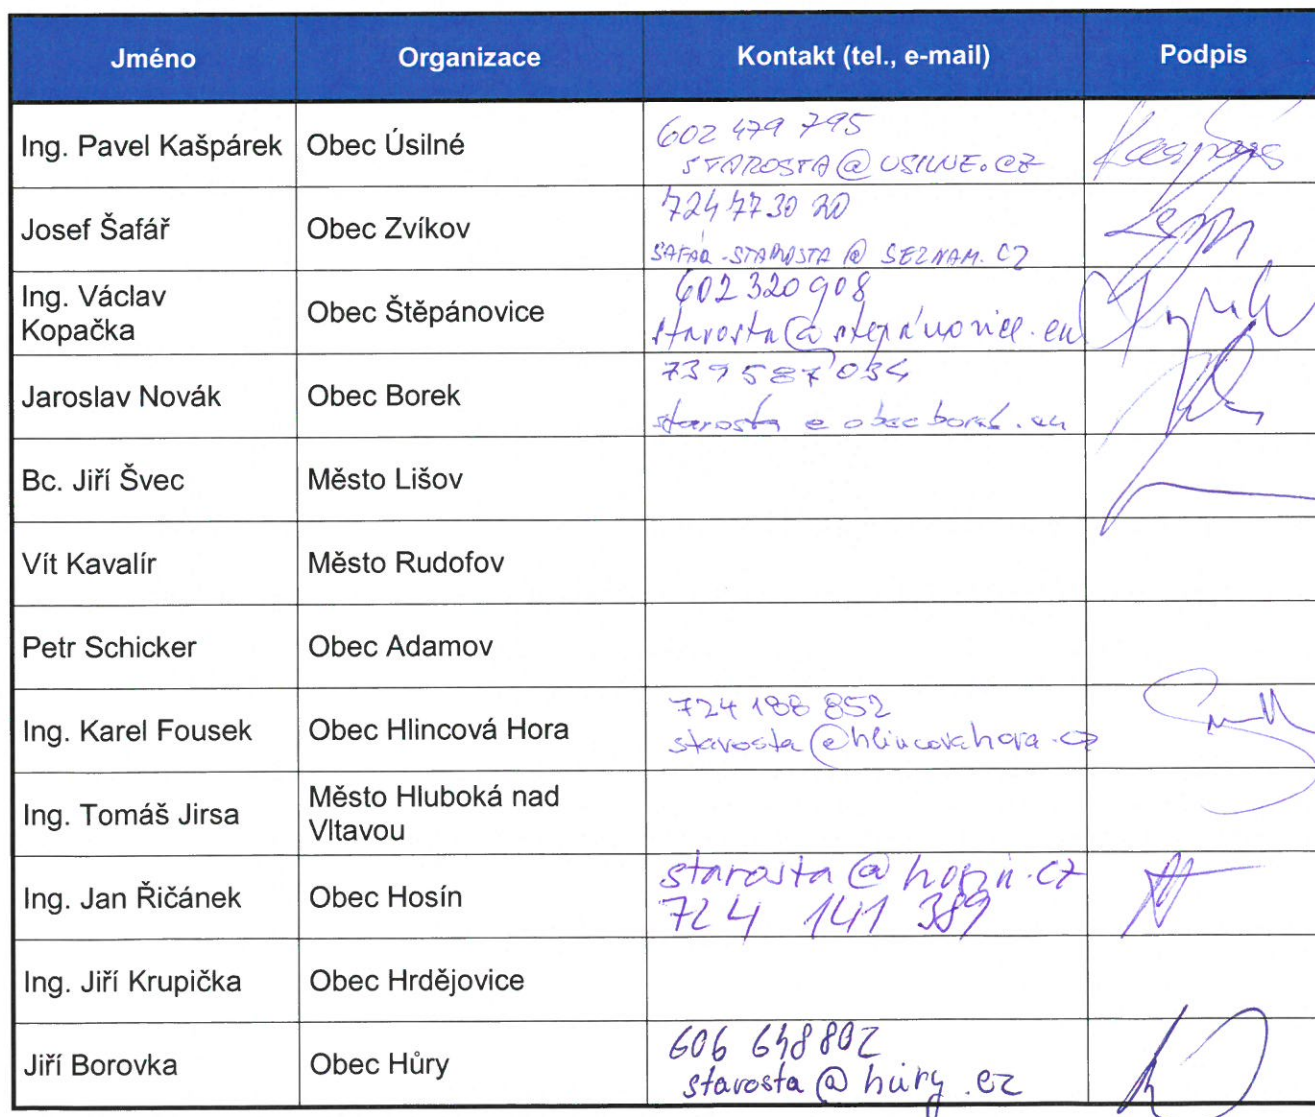 Jméno Organizace Kontakt (tel., e-mail) Podpis
Ing. Pavel Kašpárek Obec Úsilné 602 479 795
STAROSTA@USILNE.CZ
Josef Šafář Obec Zvíkov 724 773020
SAFAR-STAROSTA@SEZNAM.CZ
Ing. Václav
Kopačka
Obec Štěpánovice 602 320 908
starosta@stepánovice.eu
Jaroslav Novák Obec Borek 739 587 034
starosta e obecborek.eu
Bc. Jiří Švec Město Lišov
Vít Kavalír Město Rudofov
Petr Schicker Obec Adamov
Ing. Karel Fousek Obec Hlincová Hora 724 188 852
starosta@hlincovahora.cz
Ing. Tomáš Jirsa Město Hluboká nad
Vltavou
Ing. Jan Řičánek Obec Hosín starosta@hosin.cz
724 141 389
Ing. Jiří Krupička Obec Hrdějovice
Jiří Borovka Obec Hůry 606 648802
starosta@hůry.cz